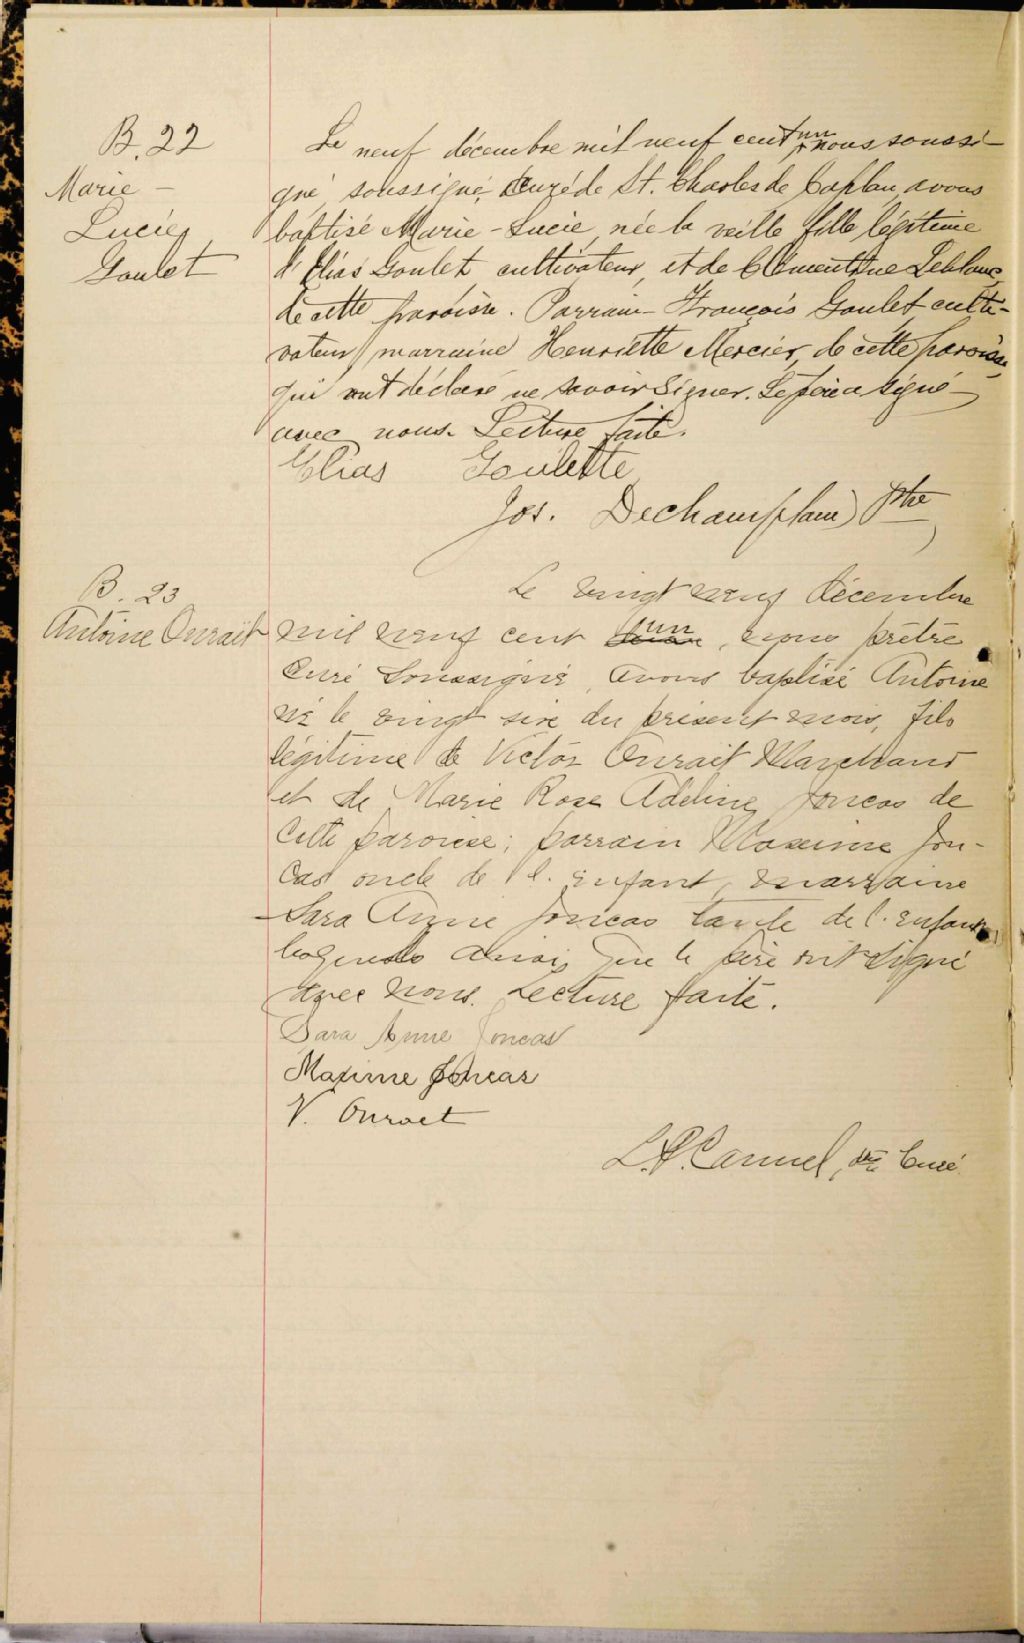 B. 22
Marie -
Lucie
Goulet
Le neuf décembre mil neuf cent un nous soussi-
gné, soussigné, curé de St. Charles de Caplan, avons
baptisé Marie-Lucie, née la veille fille légitime
d'Elias Goulet cultivateur, et de Clémentine Leblanc,
de cette paroisse. Parrain - François Goulet culti-
vateur, marraine Henriette Mercier, de cette paroisse,
qui ont déclaré ne savoir signer. Le père a signé
avec nous. Lecture faite.
Elias Goulette
Jos. Dechamplain Ptre
B. 23
Antoine Ouraït
Le vingt neuf décembre
mil neuf cent un, nous prêtre
Curé soussigné, avons baptisé Antoine
né le vingt six du présent mois, fils
légitime de Victor Ouraït Marchand
et de Marie Rose Adeline Joncas de
cette paroisse; parrain Maxime Jon-
cas oncle de l'enfant, marraine
Sara Anne Joncas tante de l'enfant
lesquels ainsi que le père ont signé
avec nous. Lecture faite.
Sara Anne Joncas
Maxime Joncas
V. Ouraet
L.P. Carmel, ptre Curé